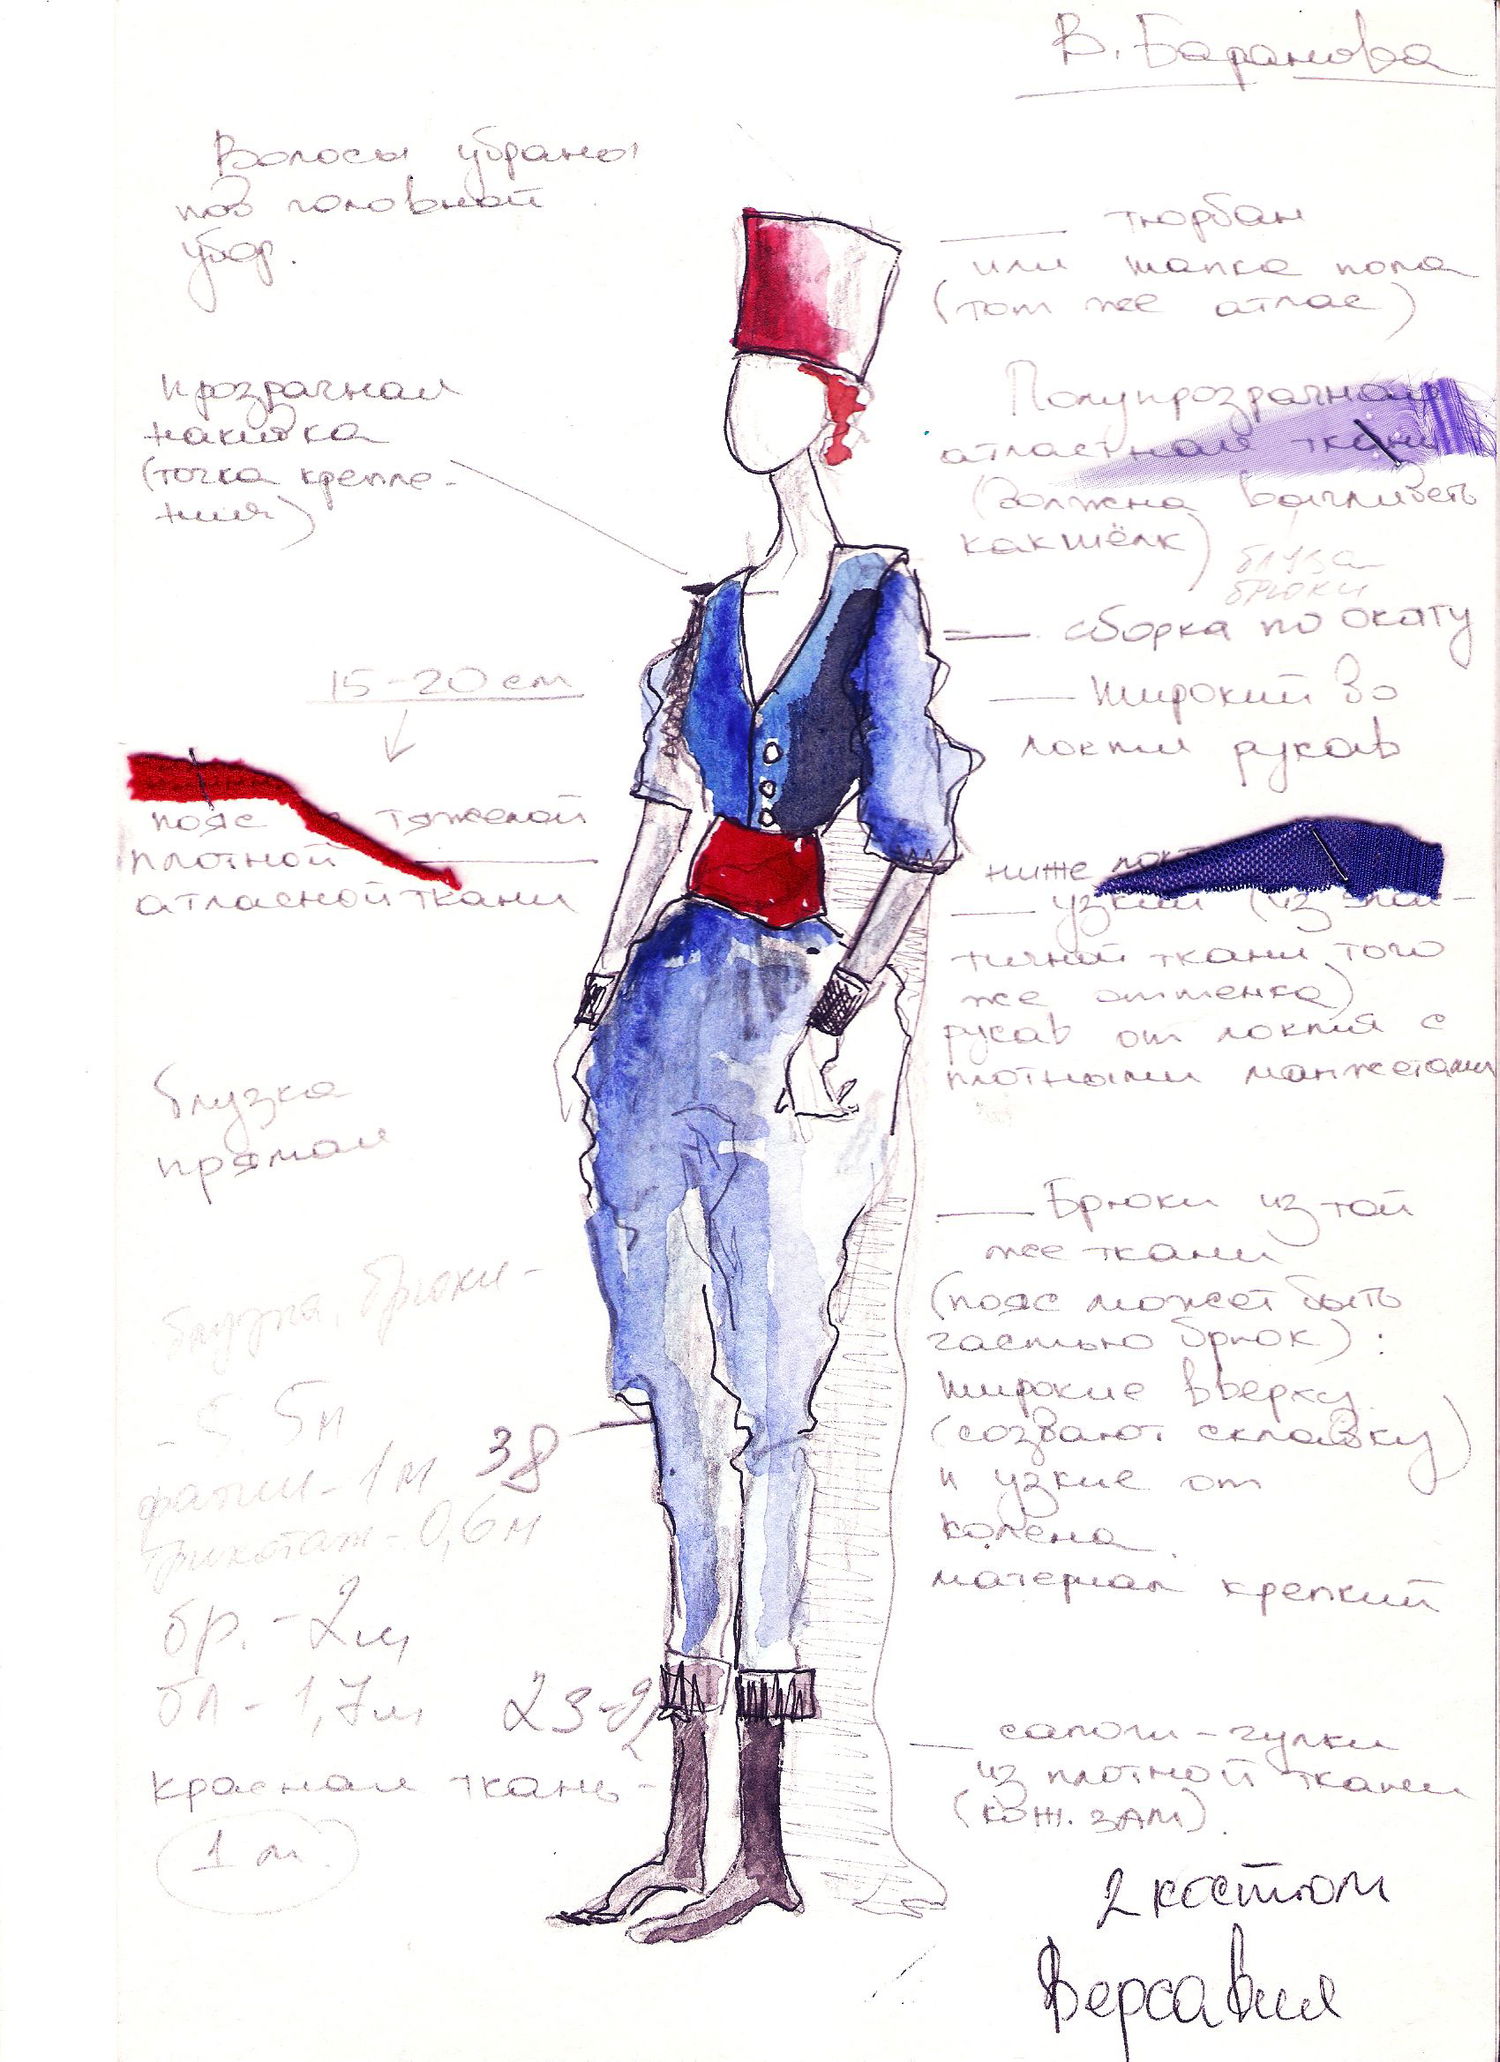 В. Баранова
Волосы убраны
под головной
убор.
тюрбан
или шапка попа
(тот же атлас)
Прозрачная
накидка
(точка крепле-
ния)
Полупрозрачная
атластная ткань
(должна выглядеть
как шёлк)
блуза
брюки
сборка по окату
широкий до
локтя рукав
15-20 см
пояс тяжелой
плотной
атласной ткани
ниже локт
узкий (из
тичной ткани того
же оттенка)
рукав от локтя с
плотными манжетами
блузка
прямая
Брюки из той
же ткани
(пояс может быть
частью брюк):
широкие вверху
(создают складку)
и узкие от
колена
материал крепкий
блузка, брюки -
- 5,5 м
фатин - 1 м
38
трикотаж - 0,6 м
бр. - 2 м
бл - 1,7 м
красная ткань -
1 м.
сапоги - чулки
из плотной ткани
(кож. зам).
2 костюм
Версавия